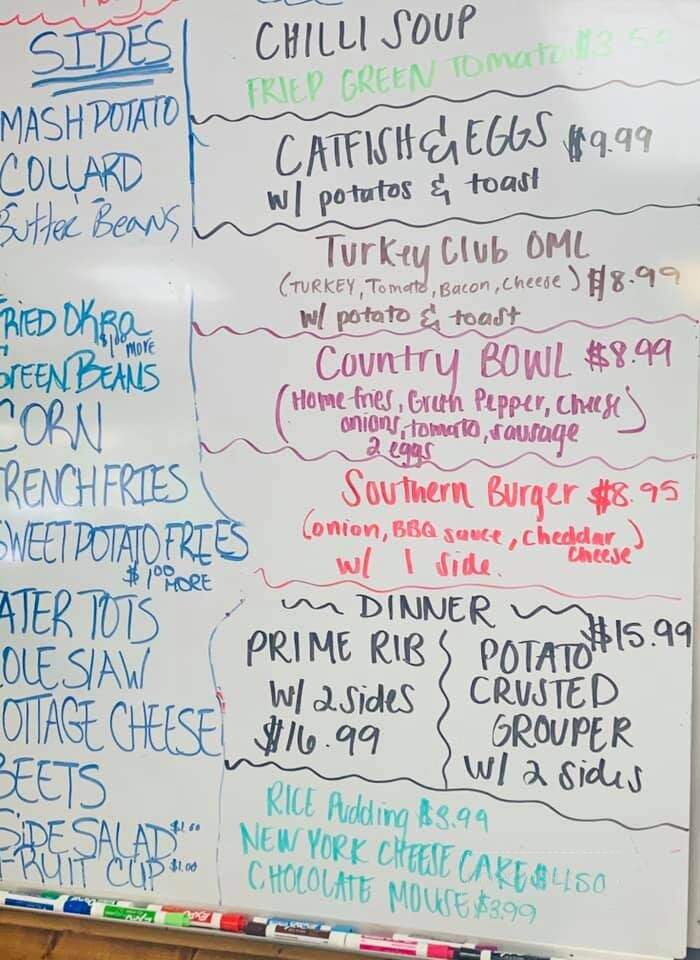 SIDES
MASH POTATO
COLLARD
Butter Beans
FRIED OKRA
$1.00 MORE
GREEN BEANS
CORN
FRENCH FRIES
SWEET POTATO FRIES
$1.00 MORE
TATER TOTS
COLE SLAW
COTTAGE CHEESE
BEETS
SIDE SALAD $1.00
FRUIT CUP $1.00
CHILLI SOUP
FRIED GREEN Tomato
CATFISH & EGGS $9.99
w/ potatos & toast
Turkey Club OML
(TURKEY, Tomato, Bacon, Cheese) $8.99
w/ potato & toast
Country BOWL $8.99
(Home-fries, Greth Pepper, Cheese
onions, tomato, sausage
2 eggs)
Southern Burger $8.95
(onion, BBQ sauce, cheddar
cheese)
w/ 1 side.
DINNER
PRIME RIB
w/ 2 sides
$16.99
$15.99
POTATO
CRUSTED
GROUPER
w/ 2 sides
RICE Pudding $3.99
NEW YORK CHEESE CAKE $4.50
CHOLOLATE MOUSE $3.99